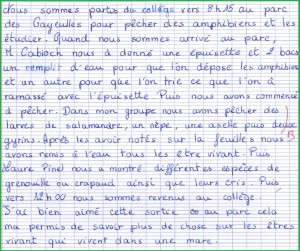 Nous sommes partis du collège vers 8h15 au parc
des Gayeulles pour pêcher des amphibiens et les
étudier. Quand nous sommes arrivé au parc,
M Cabioch nous à donné une épuisette et 2 bacs
un remplit d'eau pour que l'on dépose les amphibiens
et un autre pour que l'on trie ce que l'on à
ramassé avec l'épuisette. Puis nous avons commencé
à pêcher. Dans mon groupe nous avons pêcher des
larves de salamandre, un nèpe, une aselle puis deux
gyrins. Après les avoir notés sur la feuille nous
avons remis à l'eau tous les être vivant. Puis
Laure Pinel nous a montré différentes espèces de
grenouille ou crapaud ainsi que leurs cris. Puis
vers 12h00 nous sommes revenus au collège.
J'ai bien aimé cette sortce au parc cela
ma permis de savoir plus de chose sur les êtres
vivant qui vivent dans une mare.